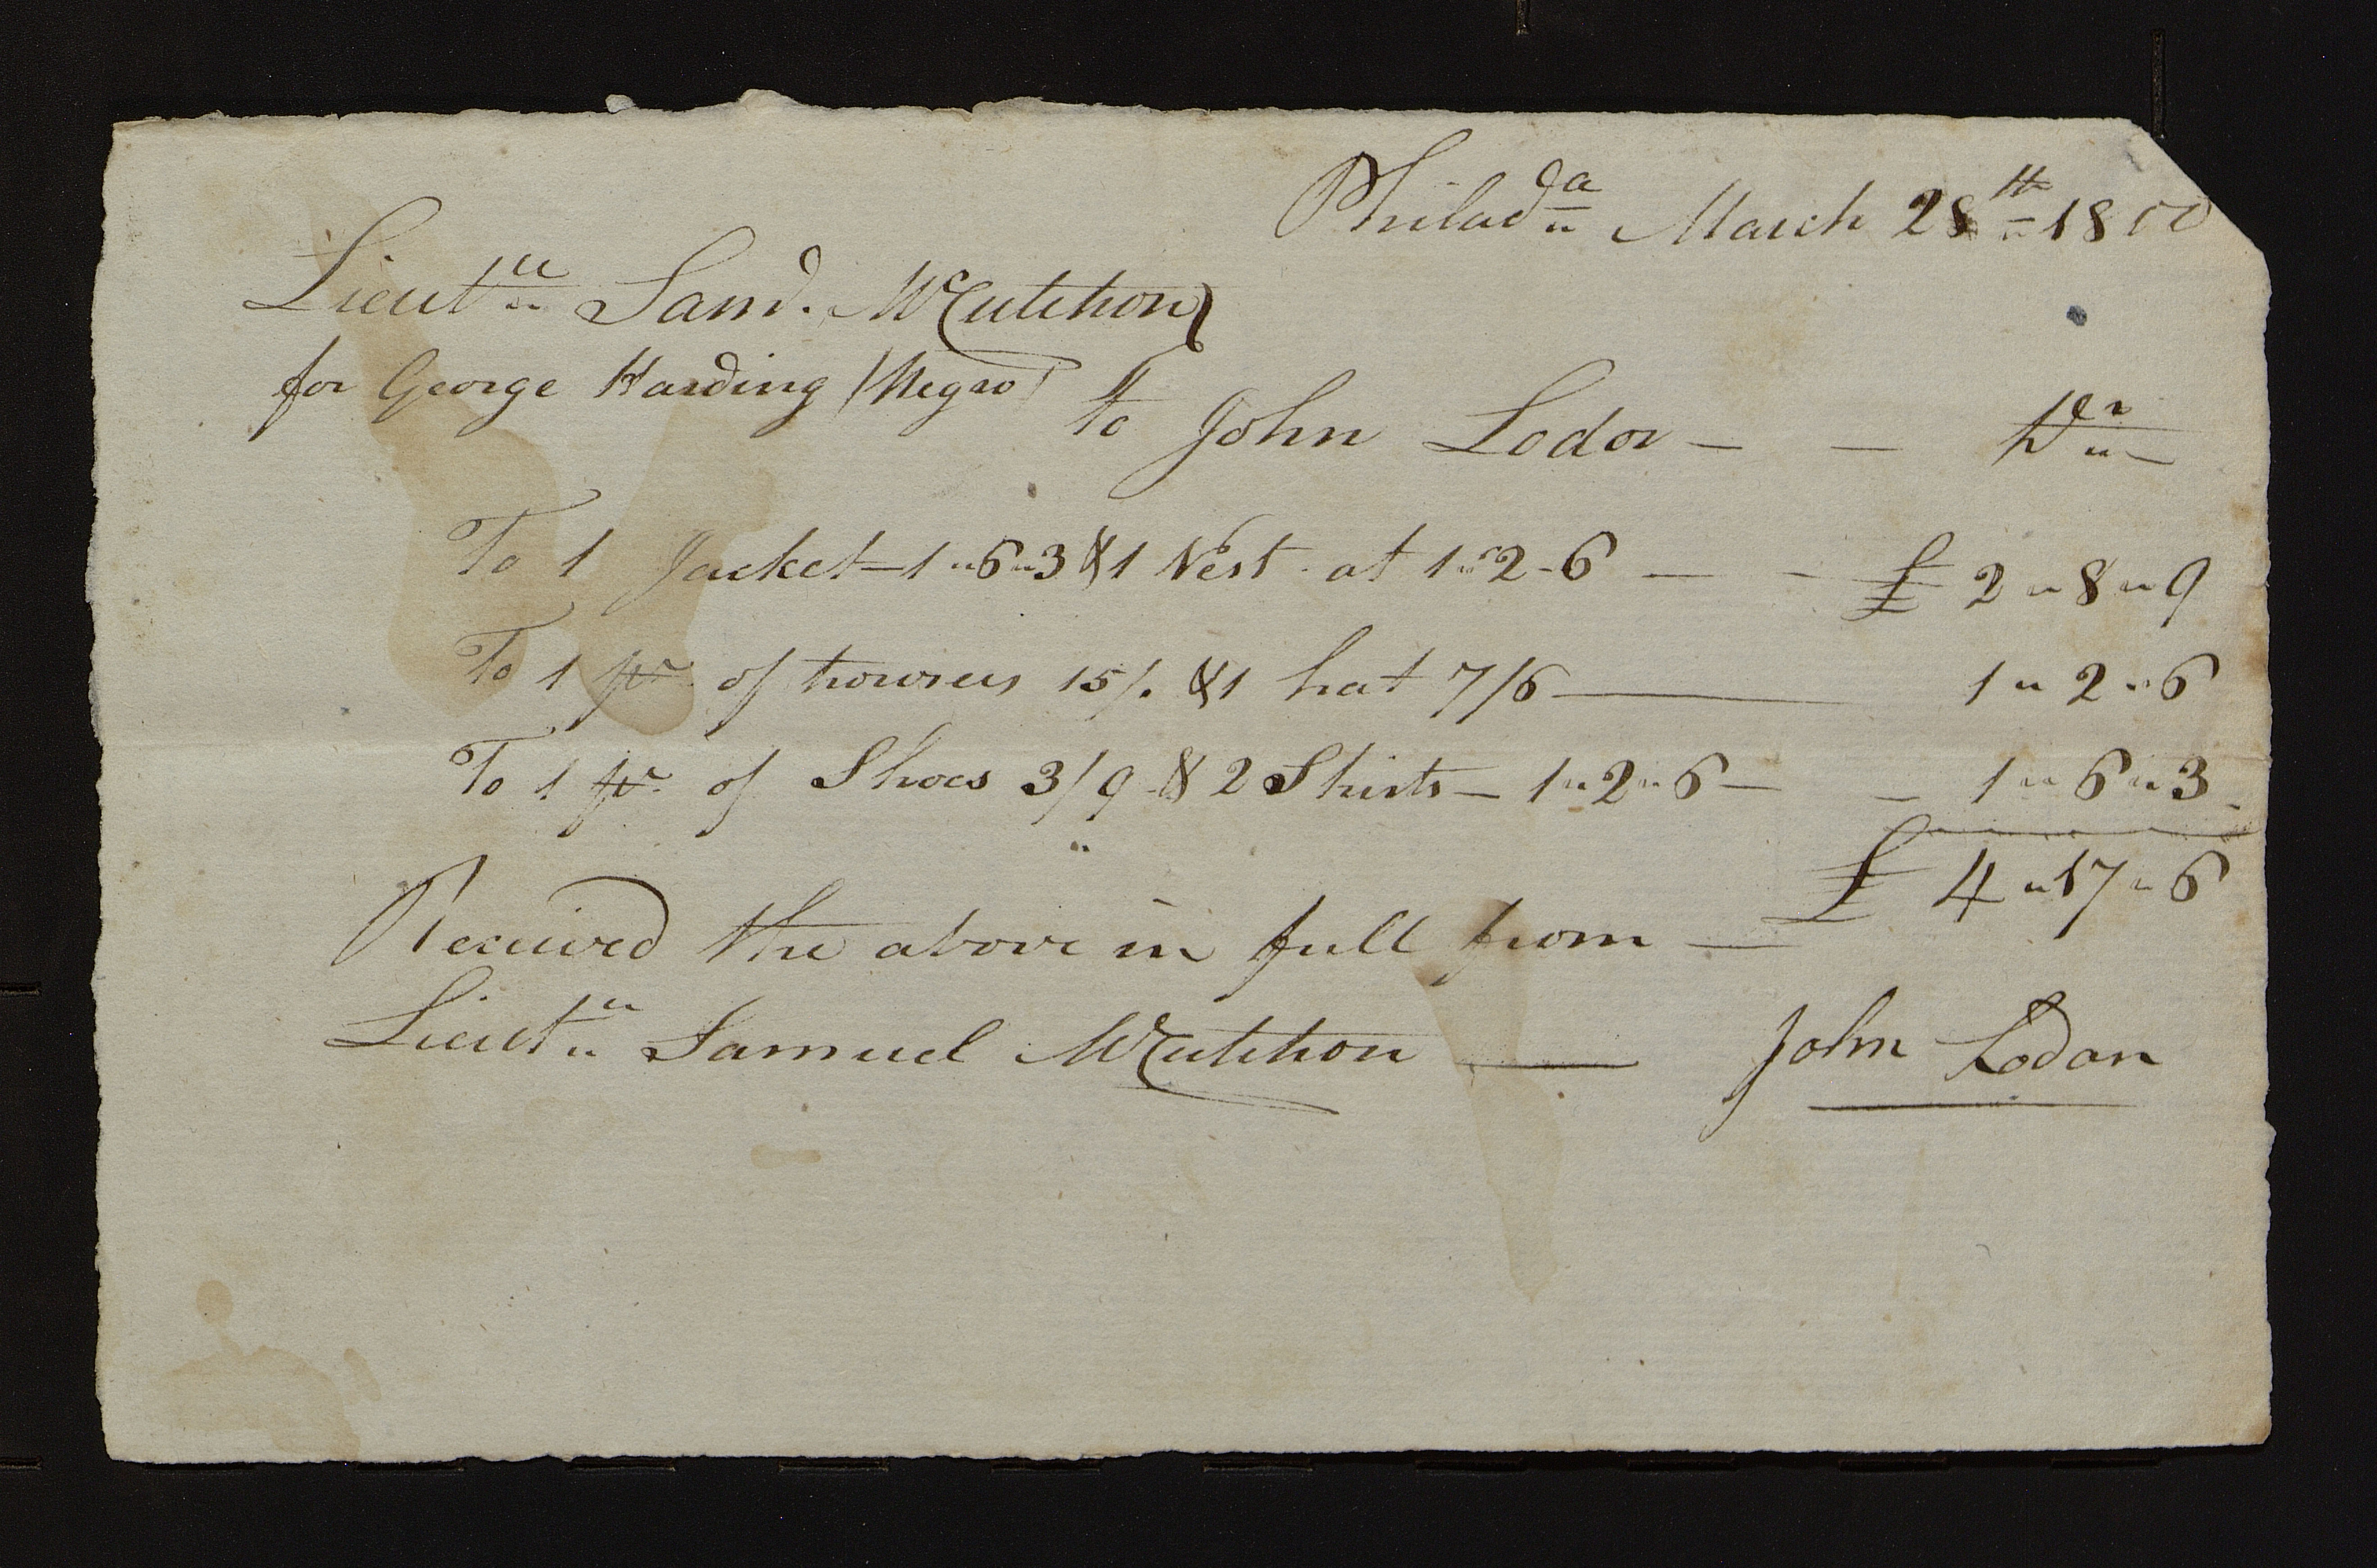 Philad.a March 28th 1800
Lieut.t Saml. McCutchon
for George Harding (Negro)
to John Lodor — — Dr
To 1 Jacket — 1 " 6 " 3 & 1 Vest at 1 " 2 - 6 — - £ 2 " 8 " 9
To 1 pr of trousers 15/. & 1 hat 7/6 — 1 " 2 " 6
To 1 pr of Shoes 3/9 & 2 Shirts — 1 " 2 " 6 — - 1 " 6 " 3
£ 4 " 17 " 6
Received the above in full from —
Lieut.t Samuel McCutchon — John Lodor